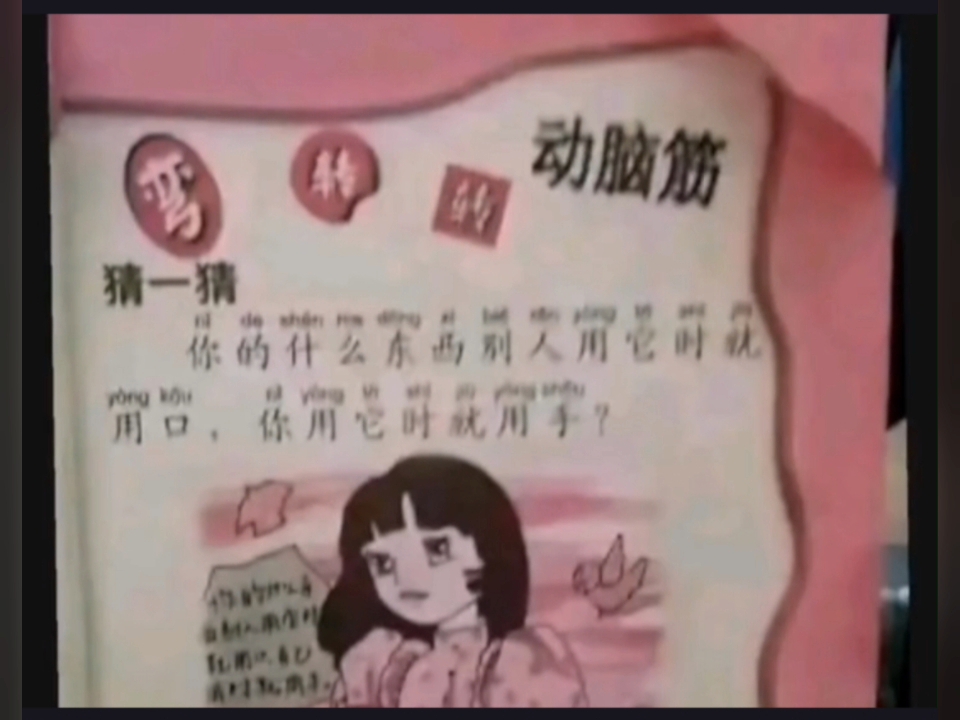 弯转转 动脑筋
猜一猜
nǐ de shén me dōng xi bié rén yòng tā shí jiù
你的什么东西别人用它时就
yòng kǒu nǐ yòng tā shí jiù yòng shǒu
用口，你用它时就用手？
你的什么东
西别人用它时
就用口,自己